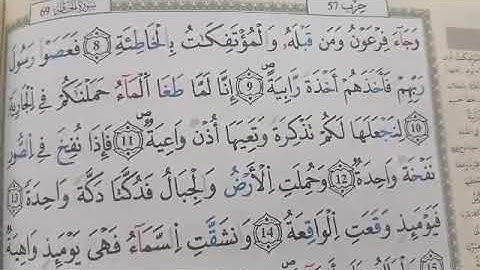 حزب 57 سورة الحاقة 69
وَجَآءَ فِرْعَوْنُ وَمَن قَبْلَهُۥ وَالْمُؤْتَفِكَٰتُ بِالْخَاطِئَةِ 8 فَعَصَوْاْ رَسُولَ
رَبِّهِمْ فَأَخَذَهُمْ أَخْذَةً رَّابِيَةً 9 إِنَّا لَمَّا طَغَا اَلْمَآءُ حَمَلْنَٰكُمْ فِي اِلْجَارِيَةِ
10 لِنَجْعَلَهَا لَكُمْ تَذْكِرَةً وَتَعِيَهَا أُذُنٌ وَٰعِيَةٌ 11 فَإِذَا نُفِخَ فِي اِلصُّورِ
نَفْخَةٌ وَٰحِدَةٌ 12 وَحُمِلَتِ اِلْأَرْضُ وَالْجِبَالُ فَدُكَّتَا دَكَّةً وَٰحِدَةً 13
فَيَوْمَئِذٍ وَقَعَتِ اِلْوَاقِعَةُ 14 وَانشَقَّتِ اِلسَّمَآءُ فَهْيَ يَوْمَئِذٍ وَاهِيَةٌ
15